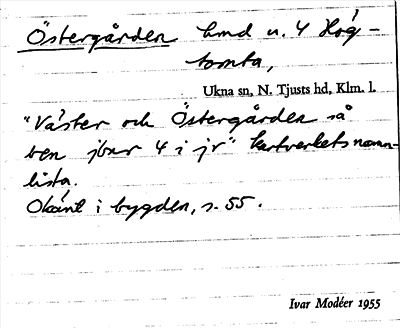 Östergården hmd u. 4 Hög-
tomta,
Ukna sn, N. Tjusts hd, Klm. l.
"Väster och Östergården så
ben jbar 4 i jr" kartverkets namn-
lista.
Okänt i bygden, s. 55.
Ivar Modéer 1955